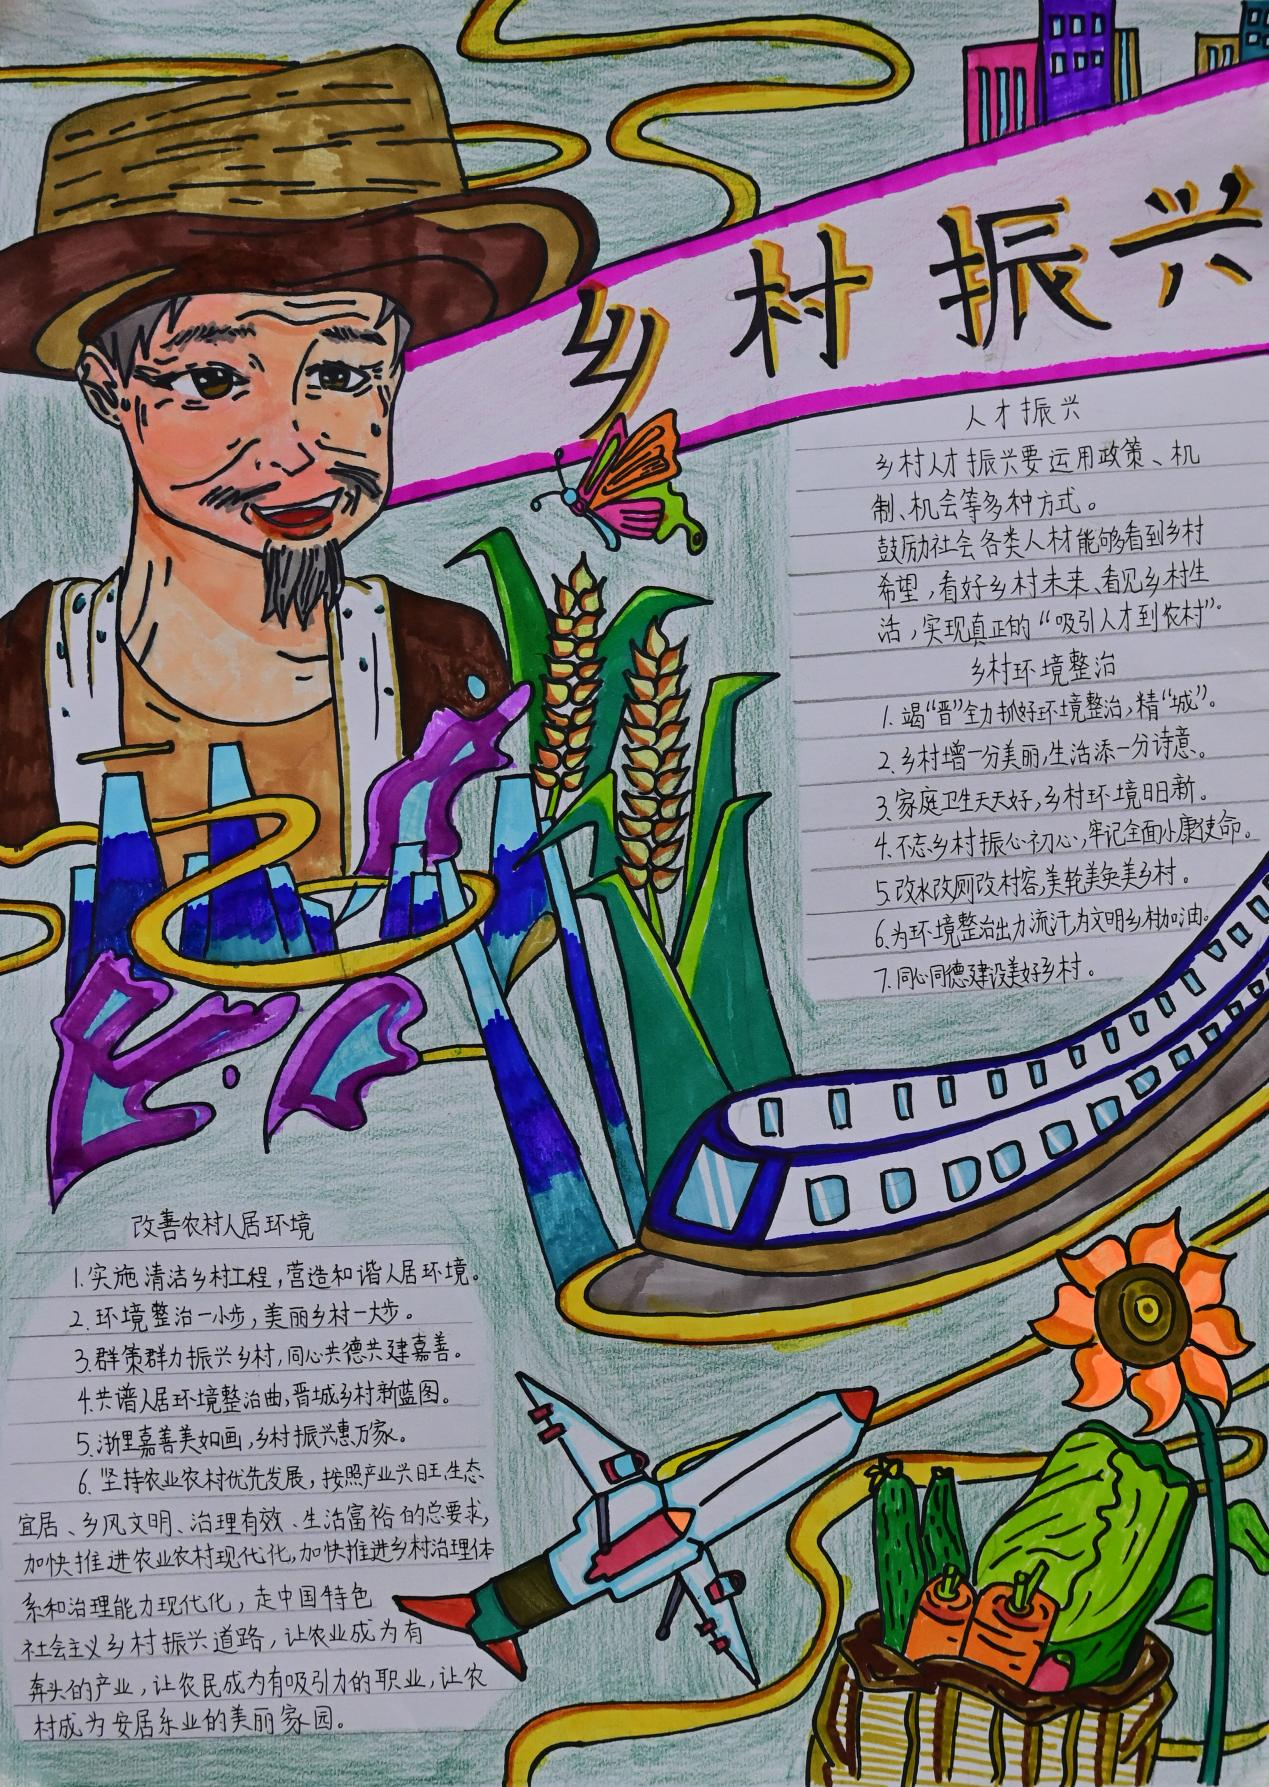 乡村振兴
人才振兴
乡村人才振兴要运用政策、机
制、机会等多种方式。
鼓励社会各类人材能够看到乡村
希望，看好乡村未来、看见乡村生
活，实现真正的“吸引人才到农村”。
乡村环境整治
1.竭“晋”全力抓好环境整治，精“城”。
2.乡村增一分美丽，生活添一分诗意。
3.家庭卫生天天好，乡村环境日日新。
4.不忘乡村振心初心，牢记全面小康使命。
5.改水改厕改村容，美轮美奂美乡村。
6.为环境整治出力流汗，为文明乡村加油。
7.同心同德建设美好乡村。
改善农村人居环境
1.实施清洁乡村工程，营造和谐人居环境。
2.环境整治一小步，美丽乡村一大步。
3.群策群力振兴乡村，同心共德共建嘉善。
4.共谱人居环境整治曲，晋城乡村新蓝图。
5.浙里嘉善美如画，乡村振兴惠万家。
6.坚持农业农村优先发展，按照产业兴旺、生态
宜居、乡风文明、治理有效、生活富裕的总要求，
加快推进农业农村现代化，加快推进乡村治理体
系和治理能力现代化，走中国特色
社会主义乡村振兴道路，让农业成为有
奔头的产业，让农民成为有吸引力的职业，让农
村成为安居乐业的美丽家园。